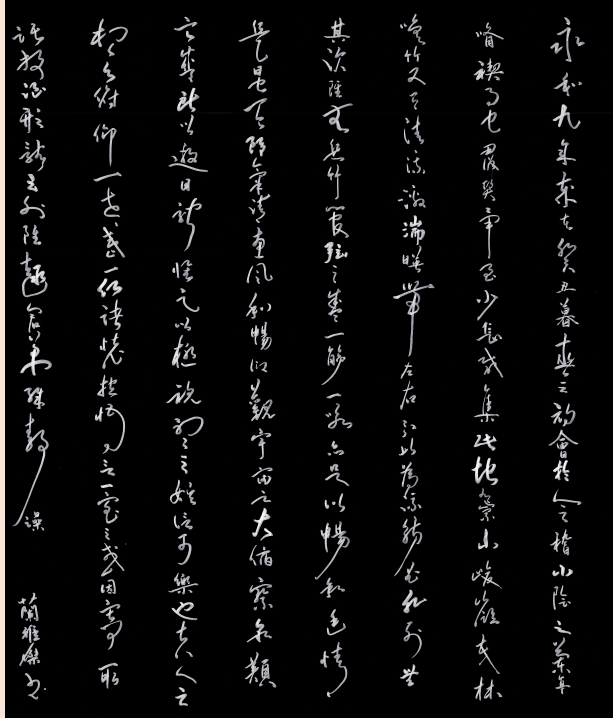 永和九年歲在癸丑暮春之初會於會稽山陰之蘭亭
脩禊事也羣賢畢至少長咸集此地崇山峻嶺茂林
脩竹又有清流激湍映帶左右引以為流觴曲水列坐
其次雖無絲竹管弦之盛一觴一詠亦足以暢敘幽情
是日也天朗氣清惠風和暢仰觀宇宙之大俯察品類
之盛所以遊目騁懷足以極視聽之娛信可樂也夫人之
相與俯仰一世或取諸懷抱悟言一室之內或因寄所
託放浪形骸之外雖趣舍萬殊靜躁